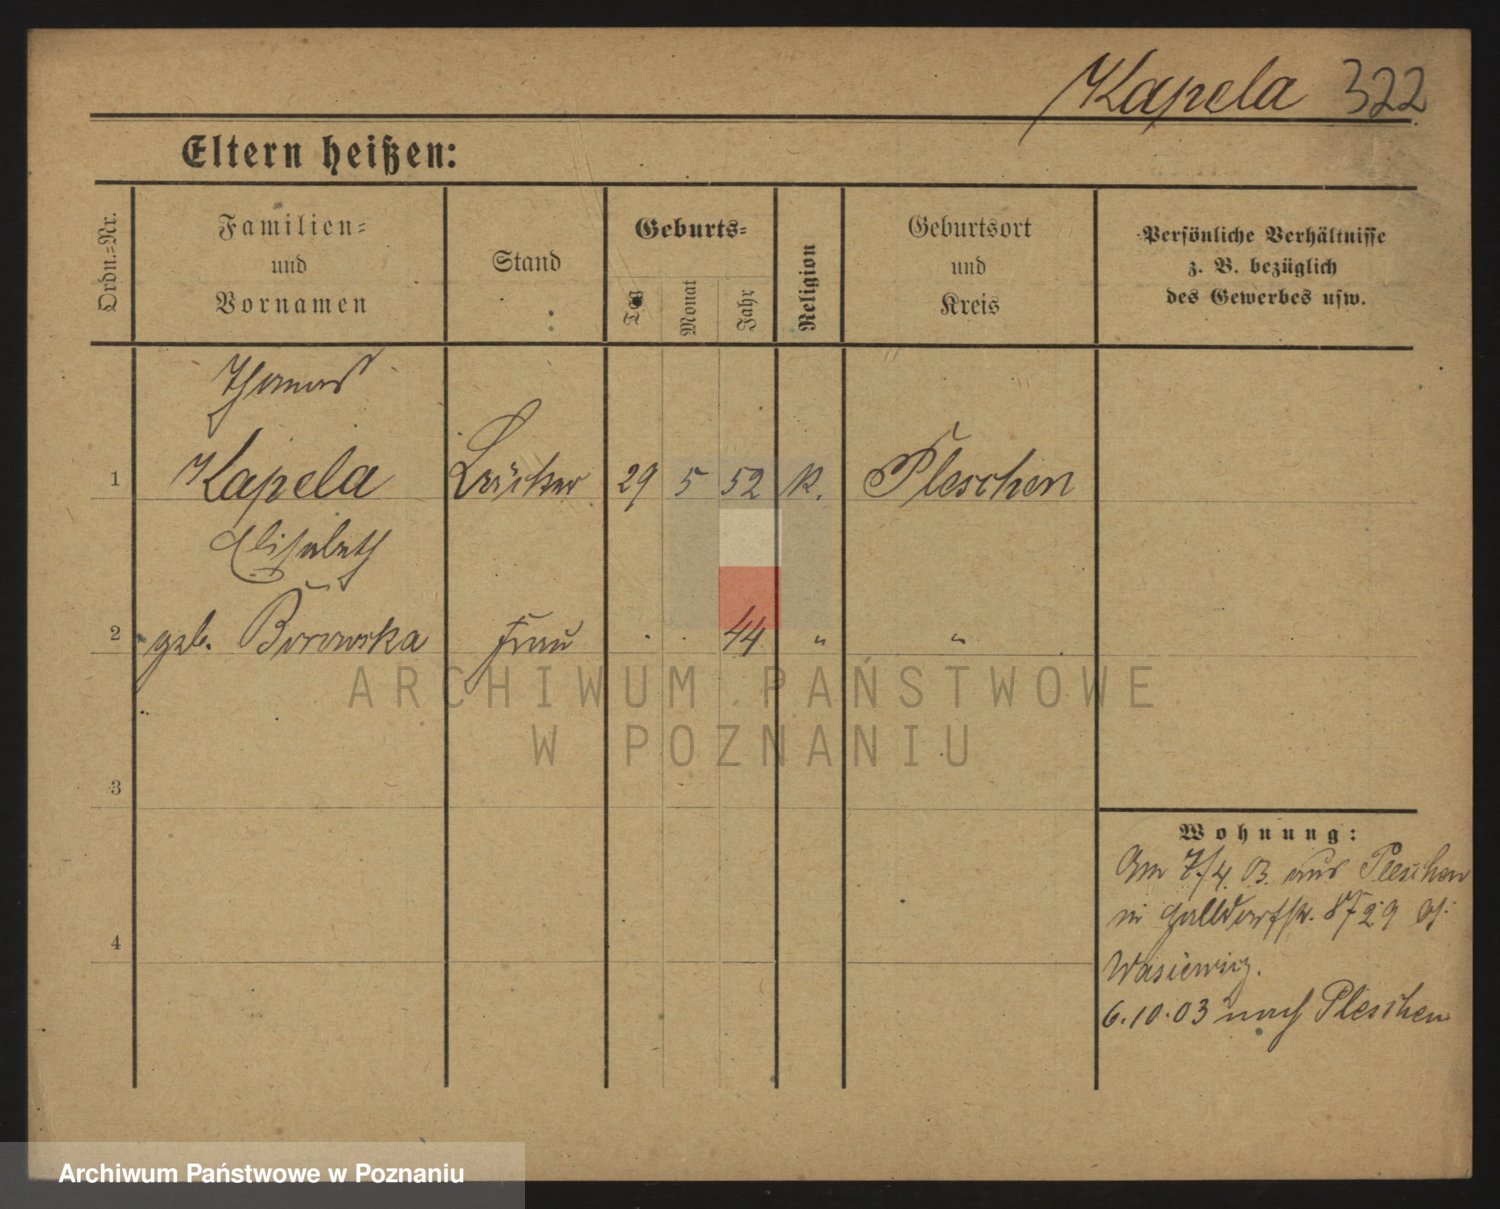 Kapela 322
Eltern heißen:
Ordn.-Nr.
Familien-
und
Vornamen
Stand
Geburts-
Tag
Monat
Jahr
Religion
Geburtsort
und
Kreis
Persönliche Verhältnisse
z. B. bezüglich
des Gewerbes usw.
Thomas
1 Kapela 29 5 52 K. Pleschen
Elisabeth
2 geb. Borowska Frau 44 " "
3
4
Wohnung:
Am 7/4. 03. aus Pleschen
in 29
6.10.03 nach Pleschen
ARCHIWUM PAŃSTWOWE
W POZNANIU
Archiwum Państwowe w Poznaniu